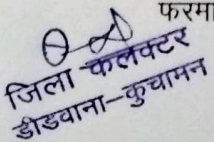 फरमा
जिला कलक्टर
डीडवाना-कुचामन